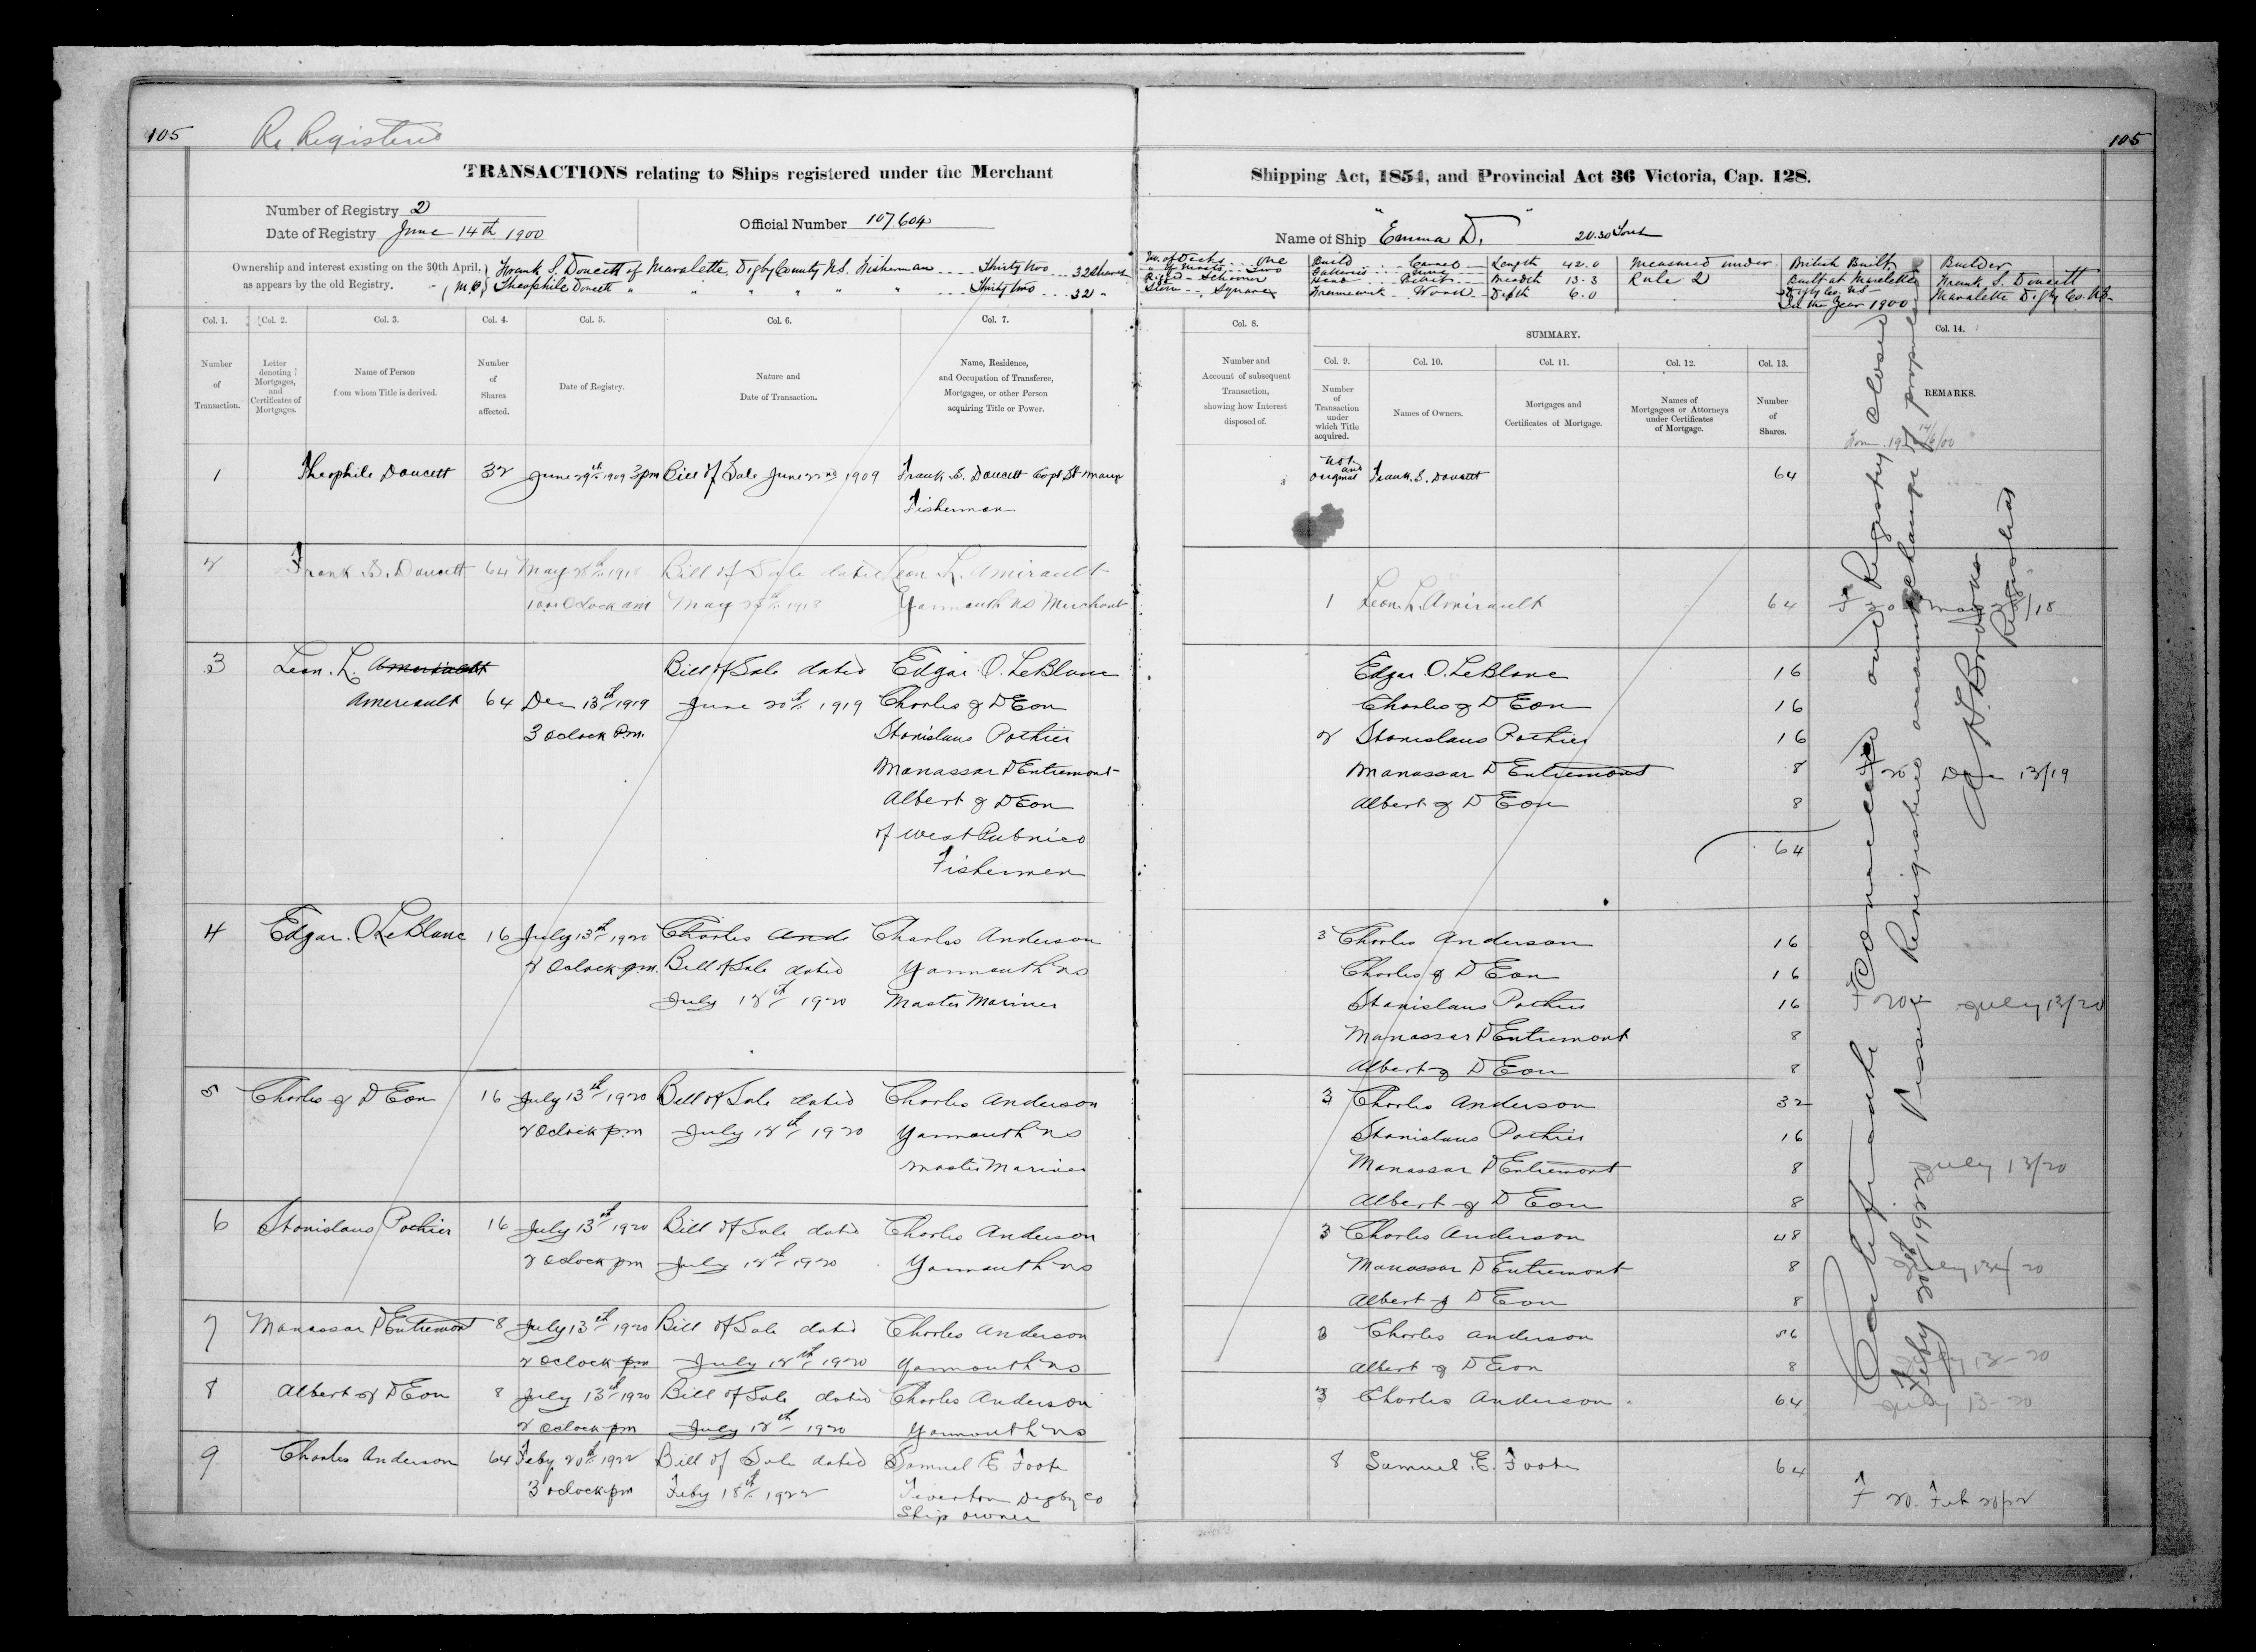 105
Re Registered
105
TRANSACTIONS relating to Ships registered under the Merchant Shipping Act, 1854, and Provincial Act 36 Victoria, Cap. 128.
Number of Registry 2
Date of Registry June 14th 1900
Official Number 107.604
Name of Ship "Emma D." 20.30 Tons
Ownership and interest existing on the 30th April, as appears by the old Registry.
Frank S. Doucett of Mavalette, Digby County N.S. Fisherman .... Thirty two ... 32 Shares
Theophile Doucett " " " " " Thirty two ... 32 "
No of Decks ... One
" of Masts ... Two
Rigged - Schooner
Stern - Square
Build ... Carvel
Framework - Wood
Length 42.0
Breadth 13.3
Depth 6.0
Measured under Rule 2
British Built,
Built at Mavalette
Digby Co. NS
In the Year 1900
Builder
Frank S. Doucett
Mavalette Digby Co. NS
Col. 1. Col. 2. Col. 3. Col. 4. Col. 5. Col. 6. Col. 7.
Number of Transaction.
Letter denoting Mortgages, and Certificates of Mortgages.
Name of Person from whom Title is derived.
Number of Shares affected.
Date of Registry.
Nature and Date of Transaction.
Name, Residence, and Occupation of Transferee, Mortgagee, or other Person acquiring Title or Power.
Col. 8.
Number and Account of subsequent Transaction, showing how Interest disposed of.
SUMMARY.
Col. 9. Col. 10. Col. 11. Col. 12. Col. 13. Col. 14.
Number of Transaction under which Title acquired.
Names of Owners.
Mortgages and Certificates of Mortgage.
Names of Mortgagees or Attorneys under Certificates of Mortgage.
Number of Shares.
REMARKS.
1 Theophile Doucett 32 June 29th 1909 3pm Bill of Sale June 22nd 1909 Frank S. Doucett
Fisherman
original Frank. S. Doucett 64
2 Frank S. Doucett 64 May 28th 1918 Bill of Sale dated Leon L. Amirault
O'clock am May 1918 Yarmouth NS Merchant
1 Leon. L. Amirault 64
3 Leon. L.
Amereault 64 Dec 13th 1919
3 Oclock P.m.
Bill of Sale dated
June 20th 1919
Edgar O. LeBlanc
Charles J D Eon
Stanislaus Pothier
Manassar D Entremont
Albert J D Eon
of West Pubnico
Fishermen
Edgar O. LeBlanc 16
Charles J D Eon 16
2 Stanislaus Pothier 16
Manassar D Entremont 8
Albert J D Eon 8
64
F 20 Dec 13/19
4 Edgar. O LeBlanc 16 July 13th 1920 Charles Ande Charles Anderson
2 Oclock p.m. Bill of Sale dated Yarmouth NS
July 12th 1920 Master Mariner
3 Charles Anderson 16
Charles J D Eon 16
Stanislaus Pothier 16
Manassar D Entremont 8
Albert J D Eon 8
July 13/20
5 Charles J D Eon 16 July 13th 1920 Bill of Sale dated Charles Anderson
2 Oclock p.m July 12th 1920 Yarmouth NS
Master Mariner
3 Charles Anderson 32
Stanislaus Pothier 16
Manassar D Entremont 8
Albert J D Eon 8
July 13/20
6 Stanislaus Pothier 16 July 13th 1920 Bill of Sale dated Charles Anderson
2 Oclock pm July 12th 1920 Yarmouth NS
3 Charles Anderson 48
Manassar D Entremont 8
Albert J D Eon 8
July 13/20
7 Manassar D Entremont 8 July 13th 1920 Bill of Sale dated Charles Anderson
2 Oclock pm July 12th 1920 Yarmouth NS
3 Charles Anderson 56
Albert J D Eon 8
July 13-20
8 Albert J D Eon 8 July 13th 1920 Bill of Sale dated Charles Anderson
2 Oclock pm July 12th 1920 Yarmouth NS
3 Charles Anderson 64
July 13-20
9 Charles Anderson 64 Feby 20th 1922 Bill of Sale dated Samuel E Foote
3 oclock pm Feby 18th 1922 Tiverton Digby Co
Ship owner
8 Samuel. E. Foote 64
F 20. Feb 20/22
Certificate Cancelled and Registry closed
Feby 20th 1922 Vessel Reregistered account change of propulsion
Registrar